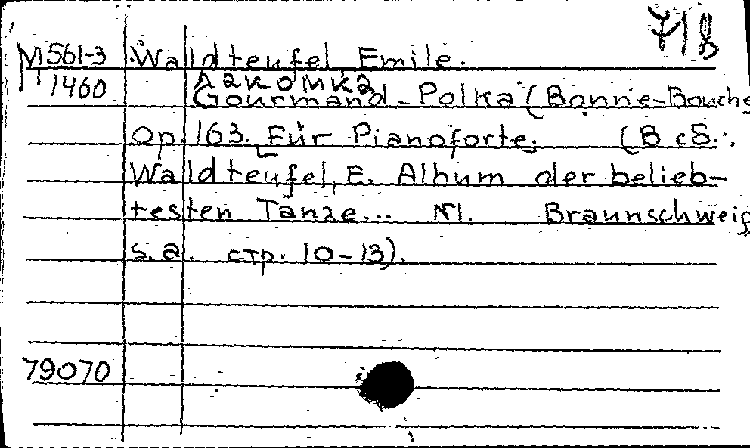 718
М561-3 Waldteufel Emile.
1460 Лакомка
Gourmand-Polka (Bonne-Bouche
Op. 163. Für Pianoforte. (В сб.:
Waldteufel, E. Album der belieb-
testen Tänze... N1. Braunschweig
s.a. стр. 10-13).
79070